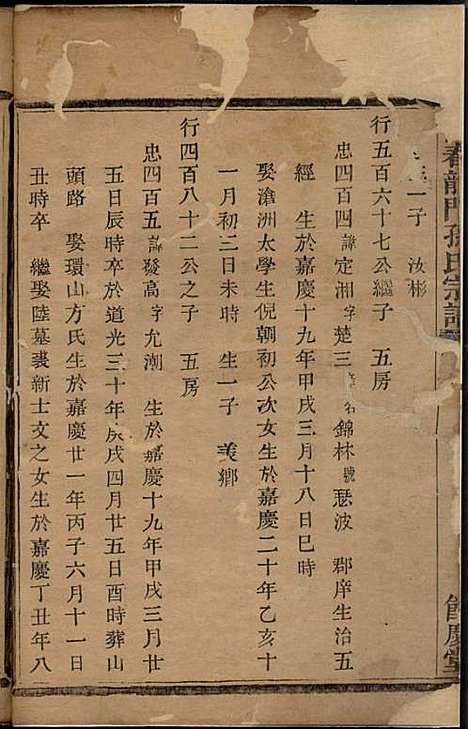 一子　汝彬
行五百六十七公繼子　五房
忠四百四諱定湘字楚三　名錦林號瑟波　郡庠生治五
經　生於嘉慶十九年甲戌三月十八日巳時
娶滄洲太學生倪朝初公次女生於嘉慶二十年乙亥十
一月初三日未時　生一子　美鄉
行四百八十二公之子　五房
忠四百五諱發高字允潮　生於嘉慶十九年甲戌三月廿
五日辰時卒於道光三十年庚戌四月廿五日酉時葬山
頭路　娶環山方氏生於嘉慶廿一年丙子六月十一日
丑時卒　繼娶陸墓裘新士文之女生於嘉慶丁丑年八
春龍門孫氏宗譜
餘慶堂